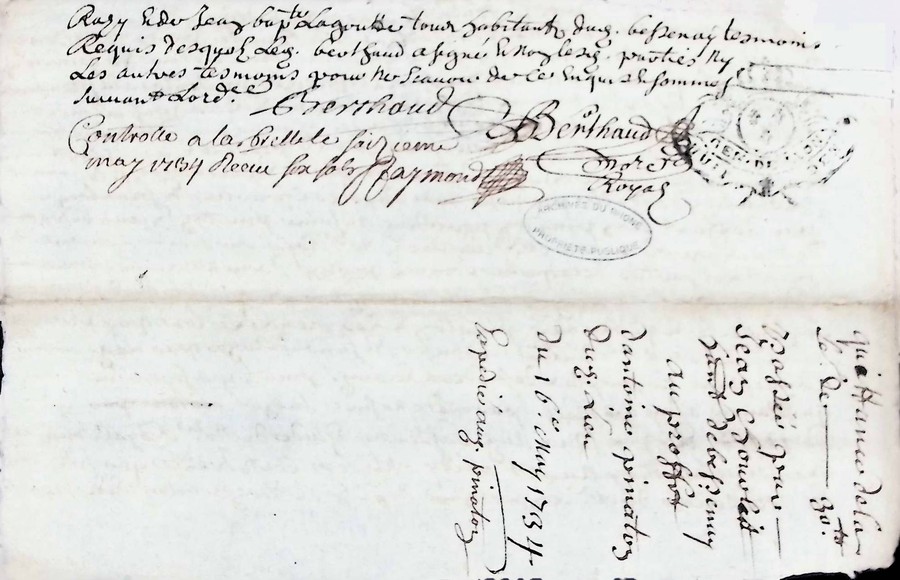 Razy & de Jean bapte Lagoutte tous habitants dud. bessenay tesmoins
Requis desquels Led. berthaud a signé & non lesd. parties Ny
Les autres tesmoins pour ne scavoir de ce Enquis & sommes
suivant Lord.ce
Berthaud
Berthaud
Nore
Royal
Controllé a la brelle le seizieme
may 1734 Receu six sols Raymond
ARCHIVES DU RHONE
PROPRIÉTÉ PUBLIQUE
quittance de la
so. de 30 tt
Passée par
Jean
dud. bessenay
au proffit
dantoine pinaton
dud. Lieu
Du 16e May 1734
Expedié aud. pinaton